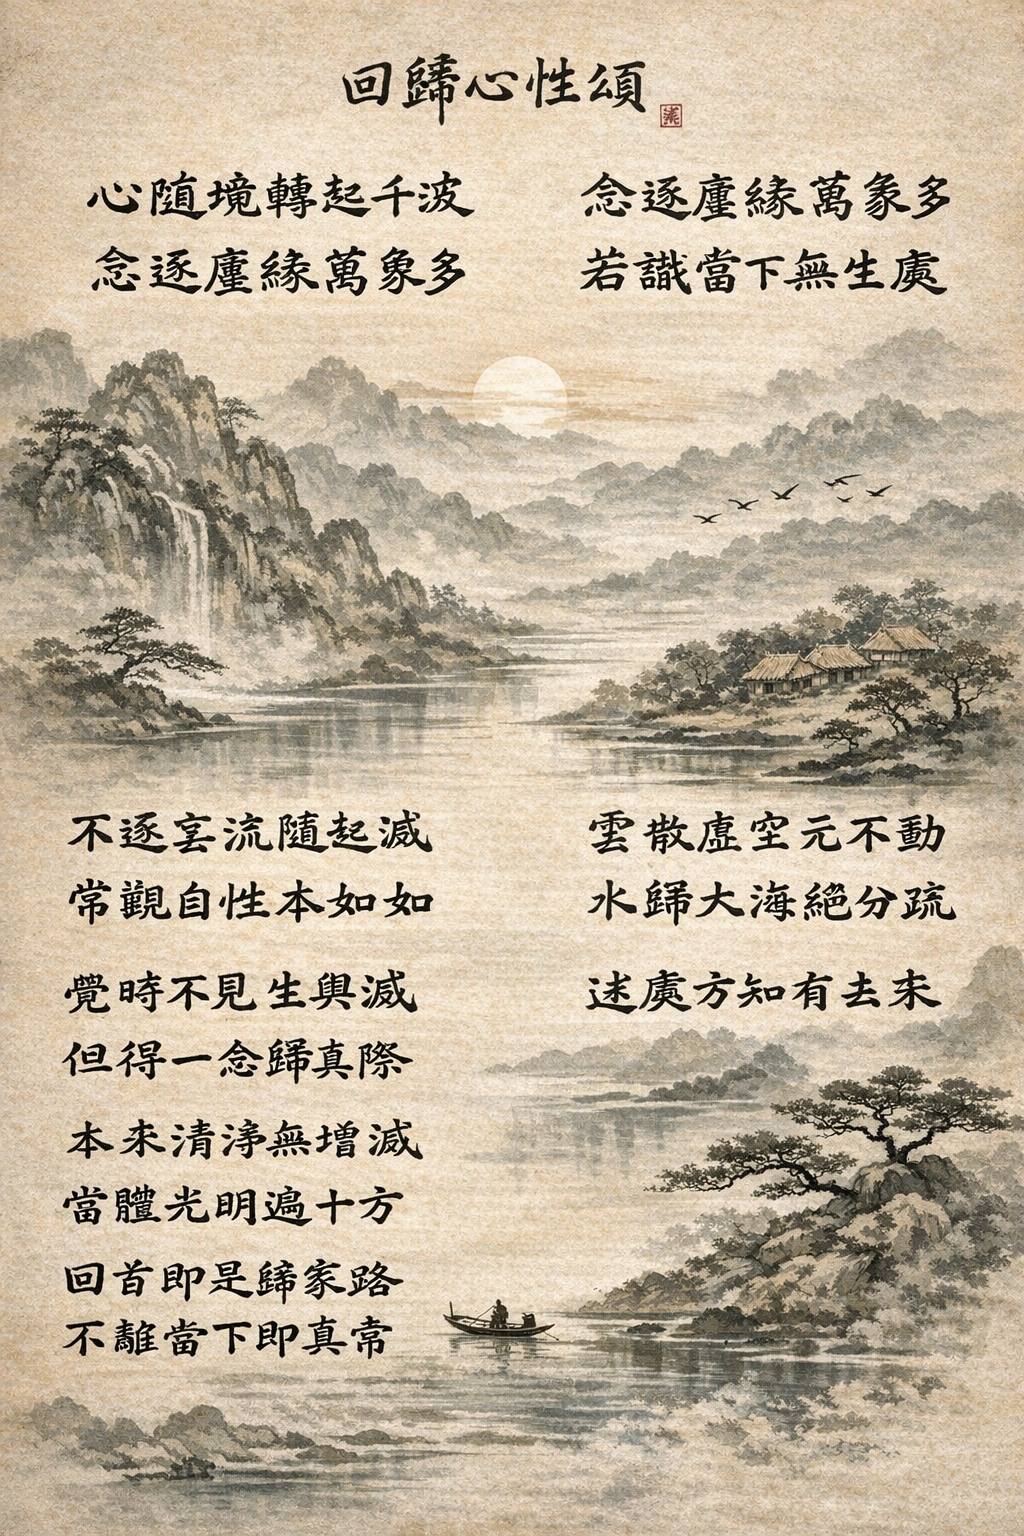 回歸心性頌
心隨境轉起千波
念逐塵緣萬象多
念逐塵緣萬象多
若識當下無生處
不逐妄流隨起滅
常觀自性本如如
雲散虛空元不動
水歸大海絕分疏
覺時不見生與滅
但得一念歸真際
迷處方知有去來
本來清淨無增減
當體光明遍十方
回首即是歸家路
不離當下即真常